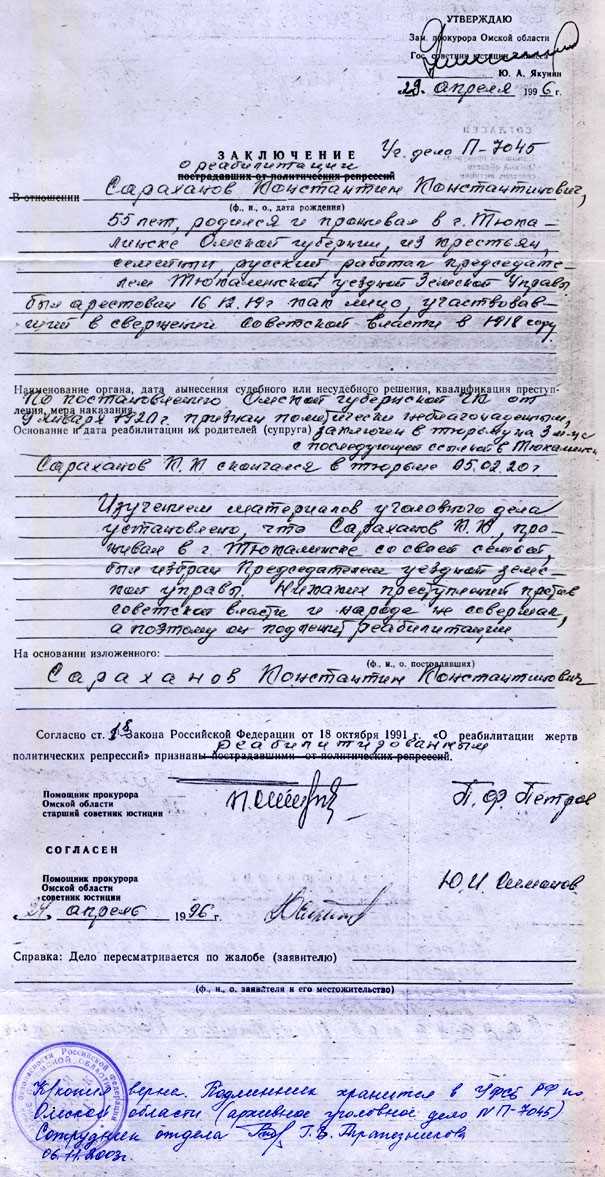 УТВЕРЖДАЮ
Зам. прокурора Омской области
Гос. советник юстиции класса
Ю. А. Якунин
29 апреля 1996 г.
ЗАКЛЮЧЕНИЕ Уг. дело П-7045
о реабилитации
пострадавших от политических репрессий
В отношении Сараханов Константин Константинович,
(ф., и., о., дата рождения)
55 лет, родился и проживал в г. Тюка-
линске Омской губернии, из крестьян,
семейный, русский работал председате-
лем Тюкалинской уездной Земской Управы
был арестован 16.12.19г как лицо, участвовав-
ший в свержении Советской власти в 1918 году.
Наименование органа, дата вынесения судебного или несудебного решения, квалификация преступ-
ления, мера наказания
По постановлению Омской губернской ЧК от
9 января 1920 г. признан политически неблагонадежным,
Основание и дата реабилитации их родителей (супруга) заключен в тюрьму на 3 м-ца
с последующей ссылкой в Тюкалинск.
Сараханов К. К скончался в тюрьме 05.02.20г
Изучением материалов уголовного дела
установлено, что Сараханов К. К, про-
живал в г. Тюкалинске со своей семьей,
был избран Председателем уездной земс-
кой управы. Никаких преступлений против
советской власти и народа не совершал,
а поэтому он подлежит реабилитации.
На основании изложенного:
(ф., и., о. пострадавших)
Сараханов Константин Константинович
Согласно ст. Закона Российской Федерации от 18 октября 1991 г. «О реабилитации жертв
реабилитированным
политических репрессий» признаны пострадавшими от политических репрессий.
Помощник прокурора
Омской области
старший советник юстиции П. Ф. Петров
СОГЛАСЕН
Помощник прокурора
Омской области
советник юстиции Ю. И.
апрель 1996 г.
Справка: Дело пересматривается по жалобе (заявителю)
(ф., и., о. заявителя и его местожительство)
Ксерокопия верна. Подлинник хранится в УФСБ РФ по
Омской области (архивное уголовное дело № П-7045)
Сотрудник отдела Г. В. Трапозникова
06.11.2003г.